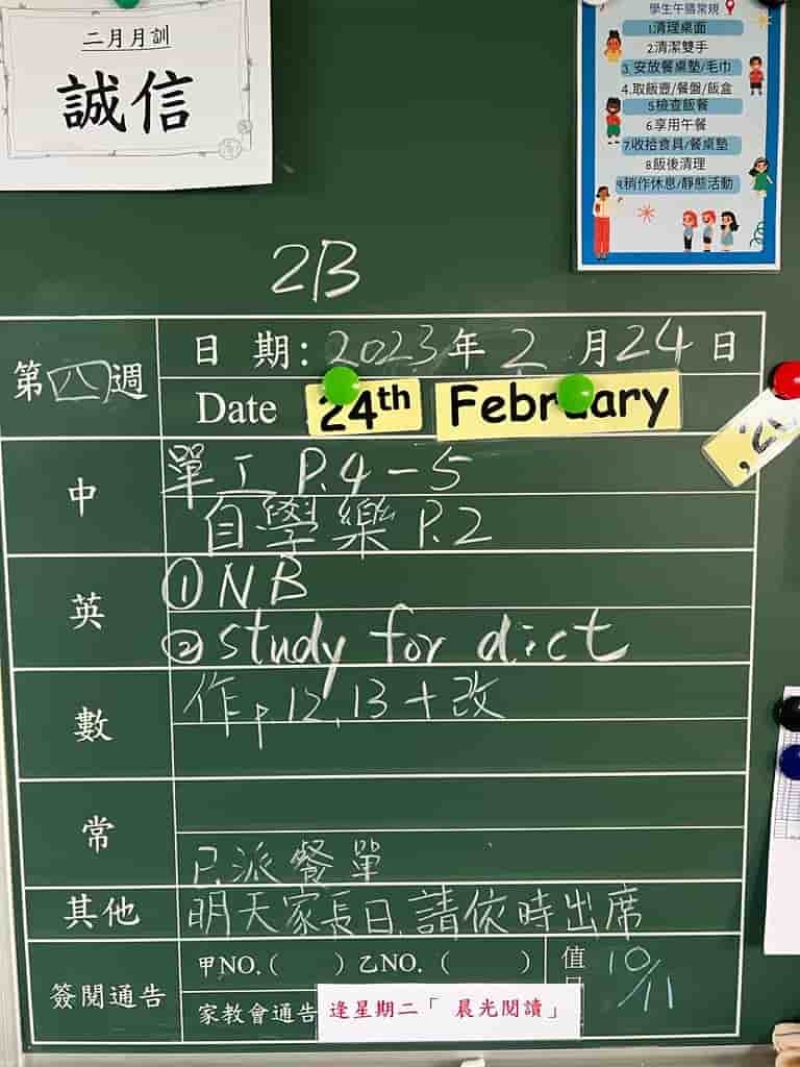 二月月訓
誠信
學生午膳常規
1.清理桌面
2.清潔雙手
3.安放餐桌墊/毛巾
4.取飯壼/餐盤/飯盒
5檢查飯餐
6.享用午餐
7.收拾食具/餐桌墊
8.飯後清理
9.稍作休息/靜態活動
2B
第四週
日 期: 2023年 2 月 24 日
Date 24th February
中
單工 P.4-5
自學樂 P.2
英
① NB
② study for dict
數
作 p.12,13+改
常
已派餐單
其他
明天家長日,請依時出席
簽閱通告
甲NO.( ) 乙NO. ( )
值
10/11
家教會通告
逢星期二「 晨光閱讀」